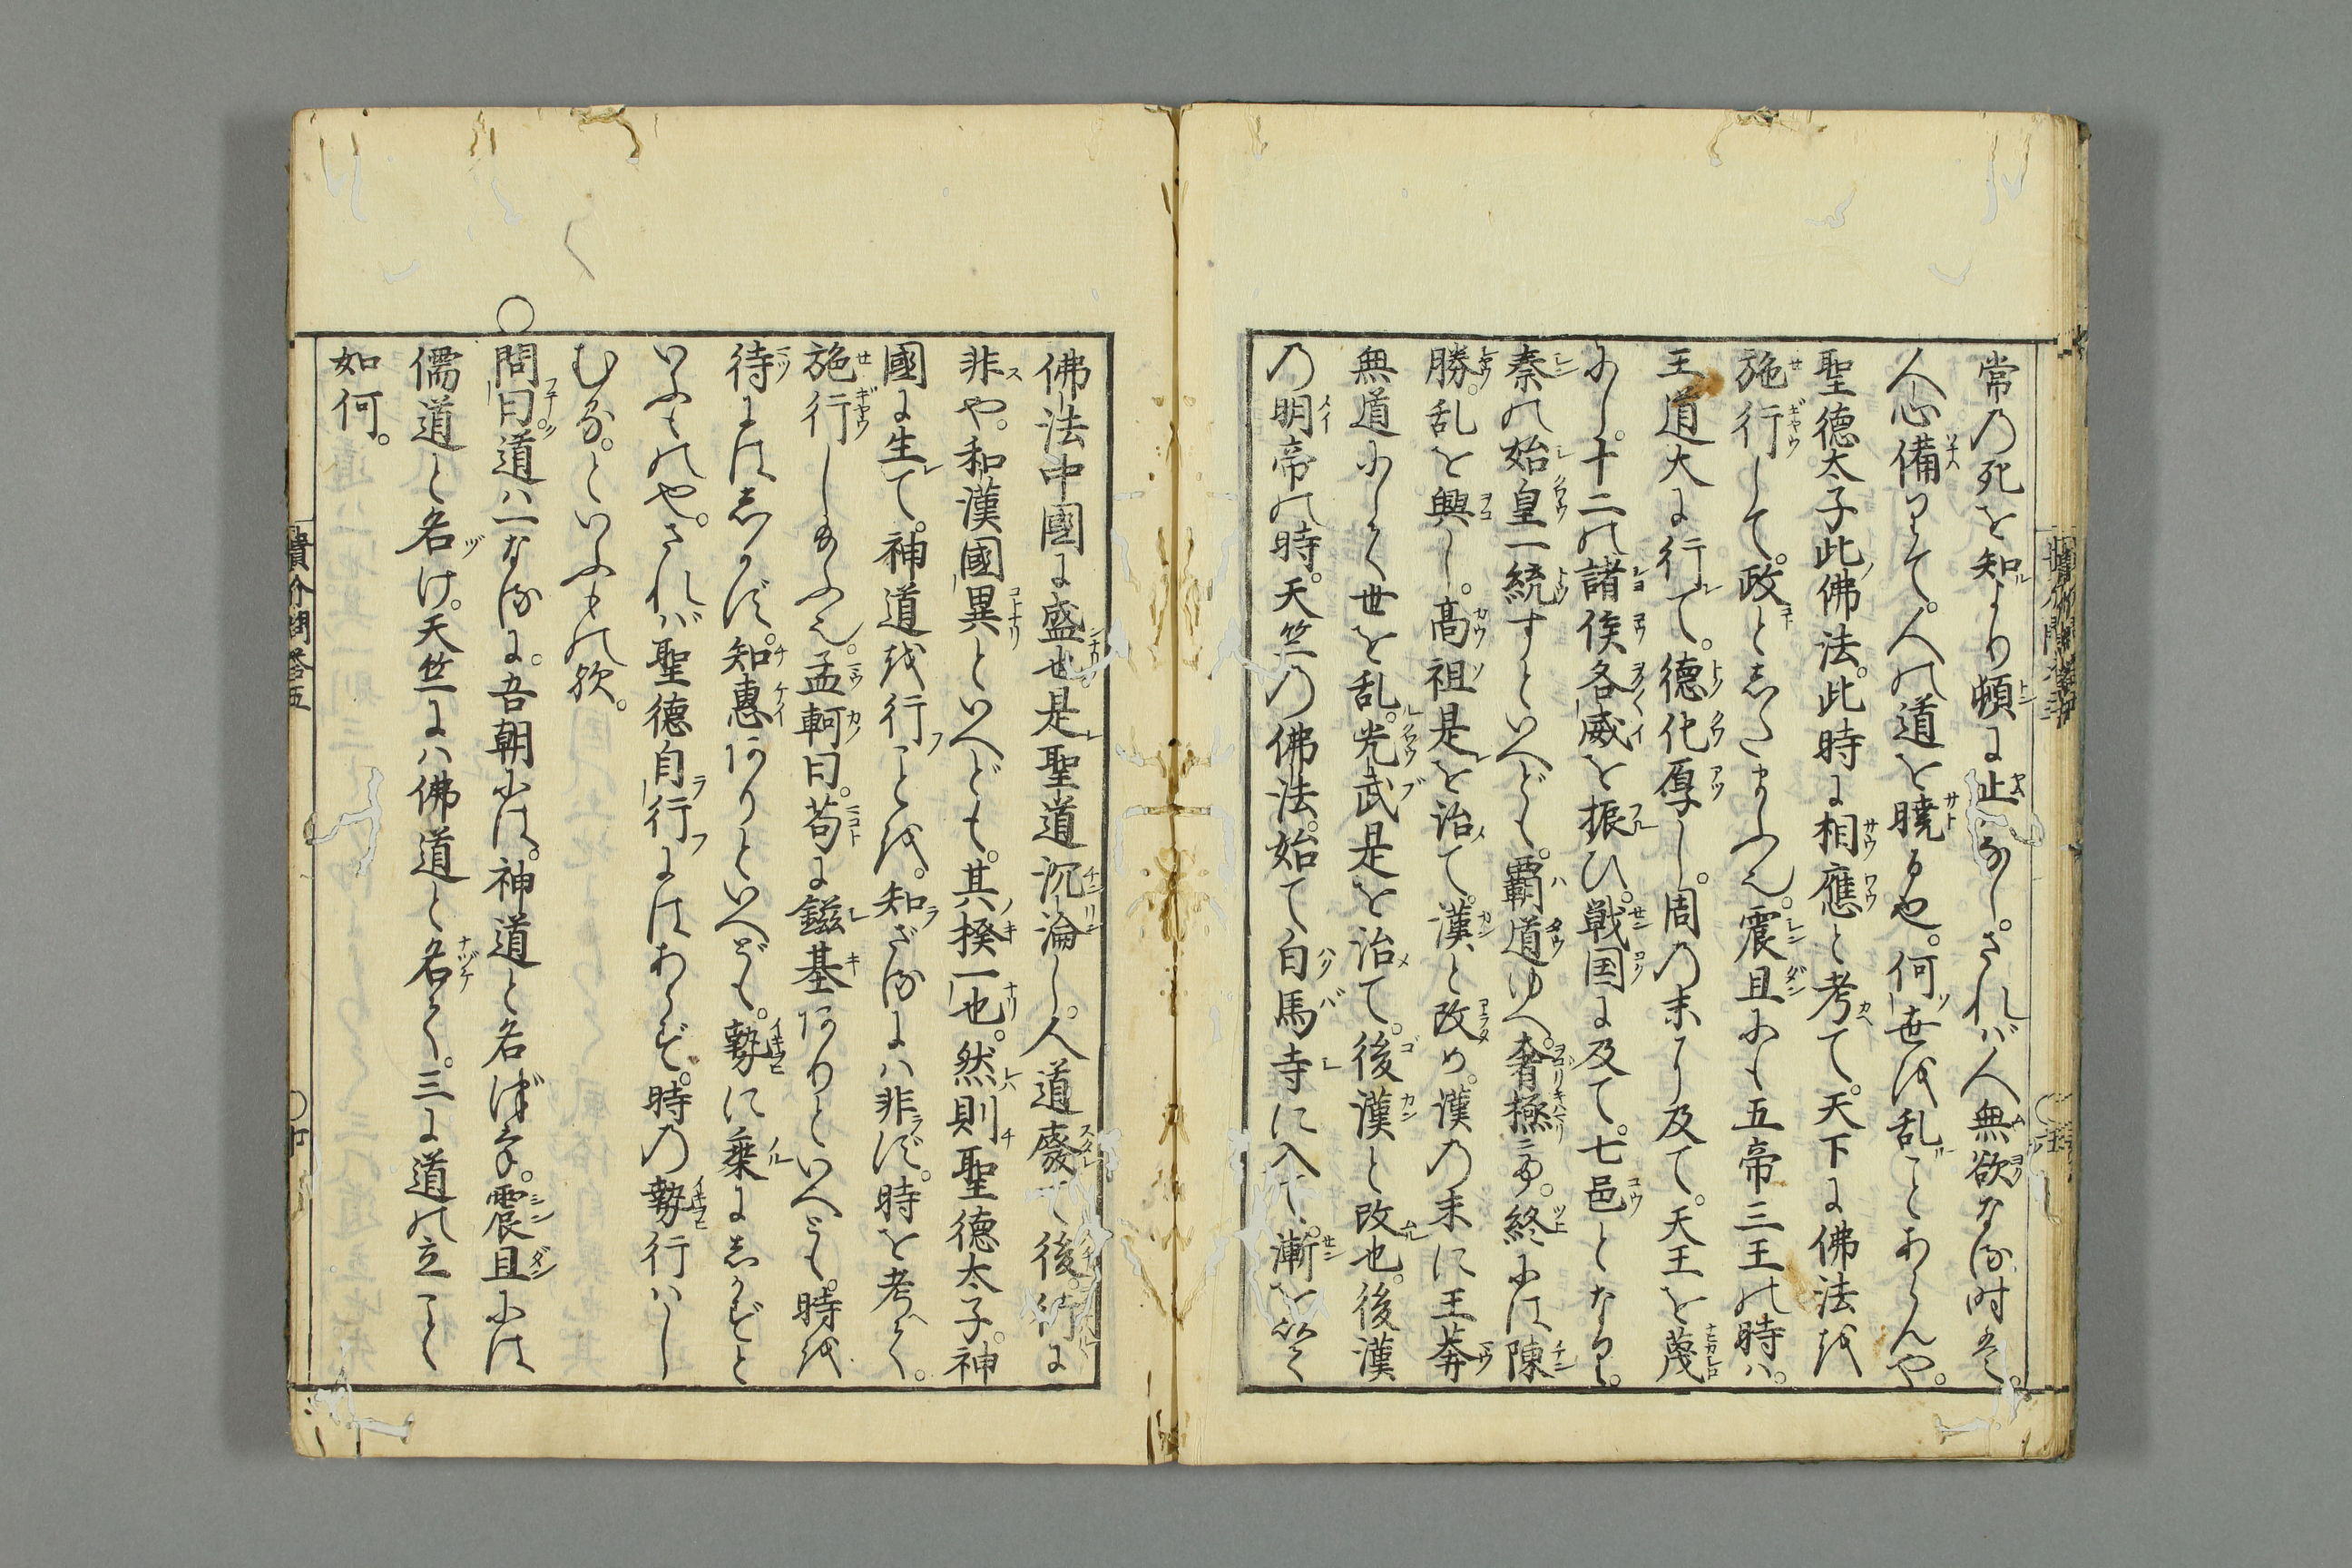 常乃死を知より頓に止なし。されバ人無欲なる时は。
人心備りて。人の道を暁るや。何世を乱ことあらんや。
聖徳太子此佛法。此時に相應と考て。天下に佛法を
施行して。政としたまふ也。震且にも五帝三王の時ハ。
王道大に行て。徳化厚し。周乃末に及て。天王を蔑
にし。十二の諸侯各威を振ひ。戦国に及て。七邑となり。
秦の始皇一統すといへども。覇道ゆへ。奢極ミ。終には陳
勝。乱を興し。高祖是を治て。漢と改め。漢乃末に王莽
無道にして世を乱。光武是を治て。後漢と改也。後漢
乃明帝の時。天竺乃佛法。始て白馬寺に入て。漸を以て
佛法中國に盛也。是聖道沉淪し。人道廢て後。行に
非や。和漢國異といへども。其揆一也。然則聖徳太子。神
國に生て。神道を行ことを。知ざるにハ非ず。時を考て。
施行したまふ也。孟軻曰。苟に鎡基ありといへども。時を
待にはしかず。知惠ありといへども。勢に乗にしかずと
いふものや。されバ聖徳自行にはあらず。時の勢行ハし
むる。といふもの歟。
○問曰。道ハ一なるに。吾朝には。神道と名ばけ。震且には
儒道と名け。天竺にハ佛道と名く。三に道の立こと
如何。